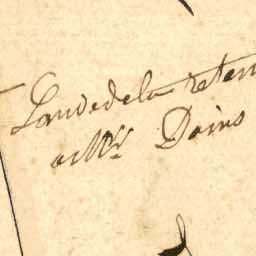 Lande de la reten
a Mr. Doins